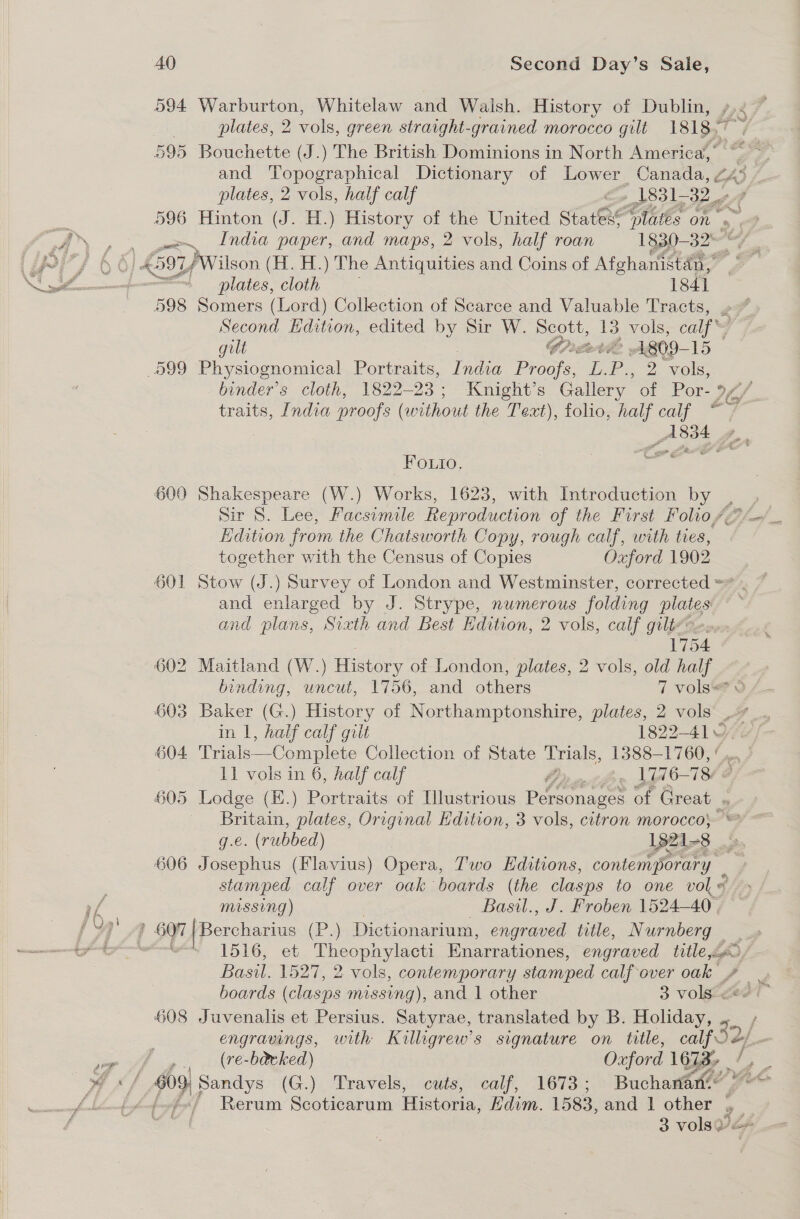 40 Second Day's Sale,
594 Warburton, Whitelaw and Walsh. History of Dublin,
plates, 2 vols, green straight-grained morocco gilt 1818
595 Bouchette (J.) The British Dominions in North America,
and Topographical Dictionary of Lower Canada,
plates, 2 vols, half calf 1831-32
596 Hinton (J. H.) History of the United States, plates on
India paper, and maps, 2 vols, half roan 1830-32
597 Wilson (H. H.) The Antiquities and Coins of Afghanistan,
plates, cloth 1841
598 Somers (Lord) Collection of Scarce and Valuable Tracts,
Second Edition, edited by Sir W. Scott, 13 vols, calf
gilt 1809-15
599 Physiognomical Portraits, India Proofs, L.P., 2 vols,
binder's cloth, 1822-23; Knight's Gallery of Por-
traits, India proofs (without the Text), folio, half calf
1834
FOLIO.
600 Shakespeare (W.) Works, 1623, with Introduction by
Sir S. Lee, Facsimile Reproduction of the First Folio
Edition from the Chatsworth Copy, rough calf, with ties,
together with the Census of Copies Oxford 1902
601 Stow (J.) Survey of London and Westminster, corrected
and enlarged by J. Strype, numerous folding plates
and plans, Sixth and Best Edition, 2 vols, calf gilt
1754
602 Maitland (W.) History of London, plates, 2 vols, old half
binding, uncut, 1756, and others 7 vols
603 Baker (G.) History of Northamptonshire, plates, 2 vols
in 1, half calf gilt 1822-41
604 Trials—Complete Collection of State Trials, 1388-1760,
11 vols in 6, half calf 1776-78
605 Lodge (E.) Portraits of Illustrious Personages of Great
Britain, plates, Original Edition, 3 vols, citron morocco,
g.e. (rubbed) 1821-8
606 Josephus (Flavius) Opera, Two Editions, contemporary
stamped calf over oak boards (the clasps to one vol
missing) Basil., J. Froben 1524-40
607 Bercharius (P.) Dictionarium, engraved title, Nurnberg
1516, et Theophylacti Enarrationes, engraved title,
Basil. 1527, 2 vols, contemporary stamped calf over oak
boards (clasps missing), and 1 other 3 vols
608 Juvenalis et Persius. Satyrae, translated by B. Holiday,
engravings, with Killigrew's signature on title, calf
(re-backed) Oxford 1673
609 Sandys (G.) Travels, cuts, calf, 1673; Buchanan
Rerum Scoticarum Historia, Edim. 1583, and 1 other
3 vols